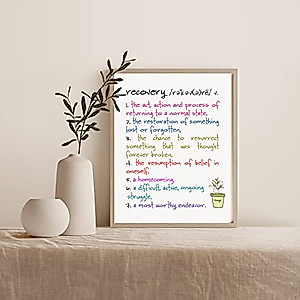 recovery
1. the act, action and process of
returning to a normal state,
2. the restoration of something
lost or forgotten,
3. the chance to resurrect
something that was thought
forever broken,
4. the resumption of belief in
oneself,
5. a homecoming,
6. a difficult, active, ongoing
struggle,
7. a most worthy endeavor.